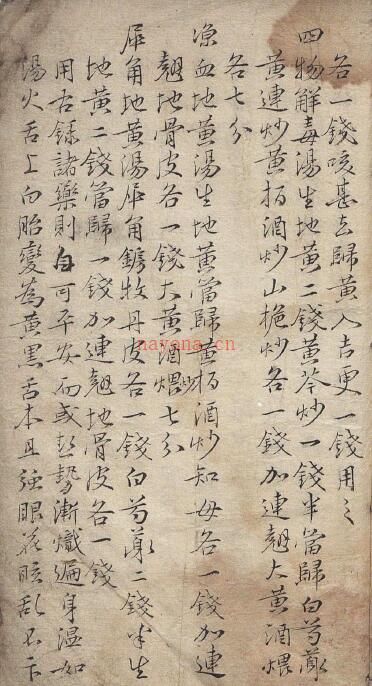 各一錢咳甚去歸黃入吉更一錢用之
四物解毒湯生地黃二錢黃芩炒一錢半當歸白芍藥
黃連炒黃栢酒炒山梔炒各一錢加連翹大黃酒煨
各七分
凉血地黃湯生地黃當歸黃栢酒炒知母各一錢加連
翹地骨皮各一錢大黃酒煨七分
犀角地黃湯犀角鎊牧丹皮各一錢白芍藥二錢半生
地黃二錢當歸一錢加連翹地骨皮各一錢
用古錄諸藥則自可平安而或熱勢漸熾遍身温如
湯火舌上白胎變為黃黑舌本且強眼花眩乱不下
nayona.cn